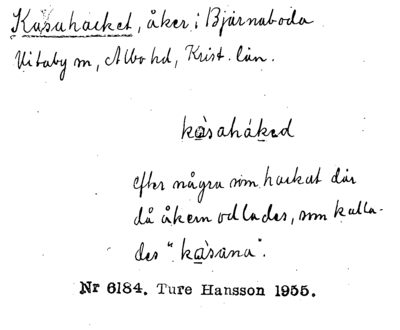 Kusahacket, åker i Bjärnaboda
Vitaby sn, Albo hd, Krist. län.
kàsahákəd
efter några som hackat där
då åkern odlades, som kalla-
des "kàsana".
Nr 6184. Ture Hansson 1955.